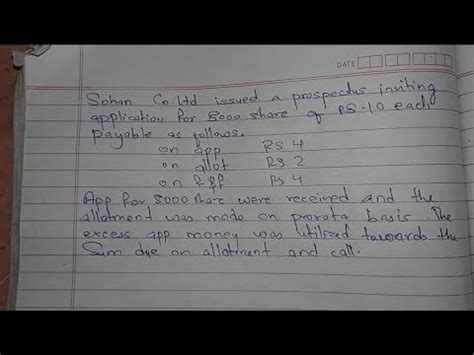 DATE
Sohan Co Ltd issued a prospectus inviting
application for 5000 share of RS-10 each
payable as follows.
on app RS 4
on allot RS 2
on F&F RS 4
App for 8000 share were received and the
allotment was made on prorata basis. The
excess app money was utilized towards the
Sum due on allotment and call.